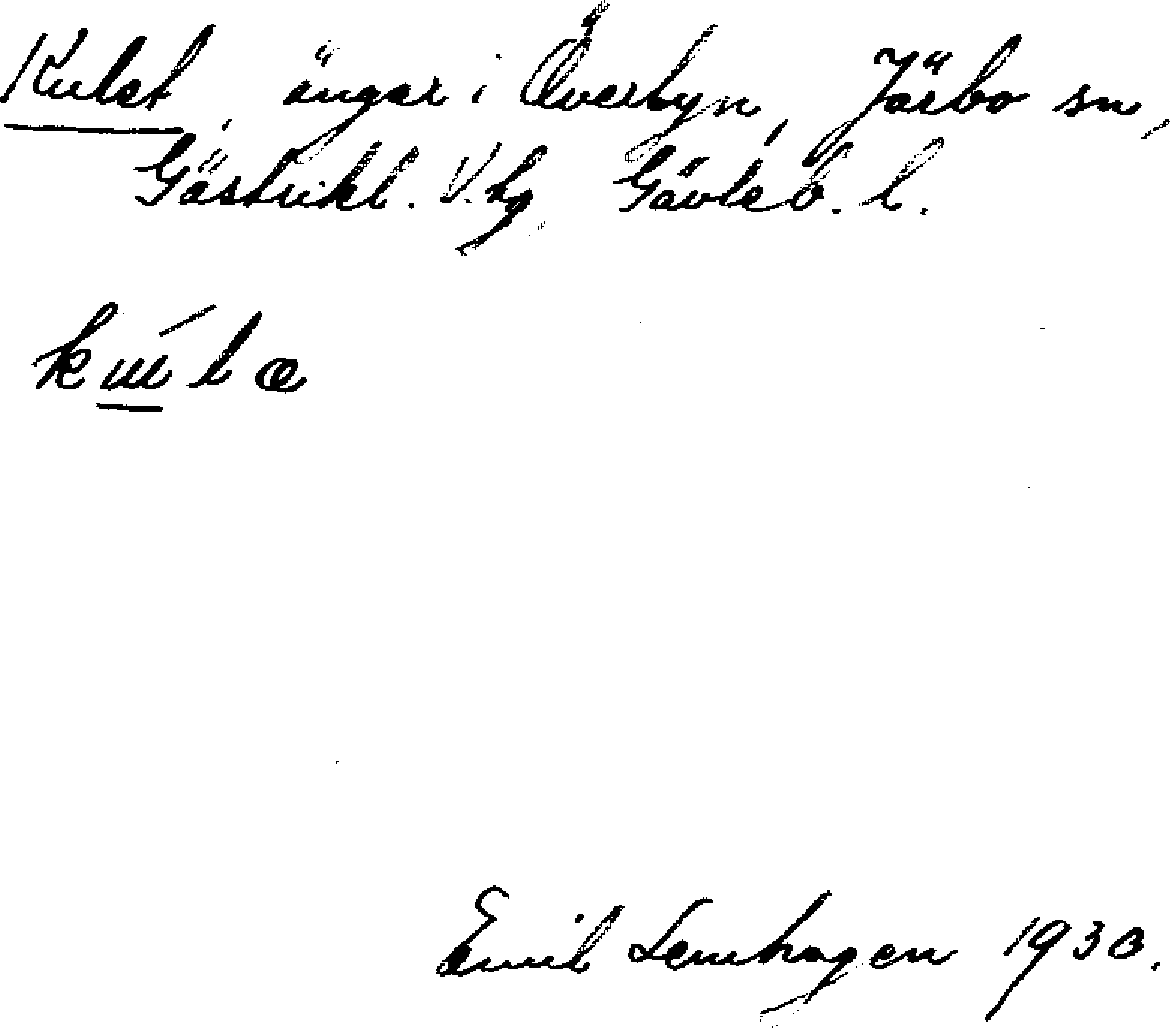 Kulet, ängar i Överbyn, Järbo sn,
Gästrikl. V. tg. Gävleb. l.
kúlæ
Emil Lemhagen 1930.